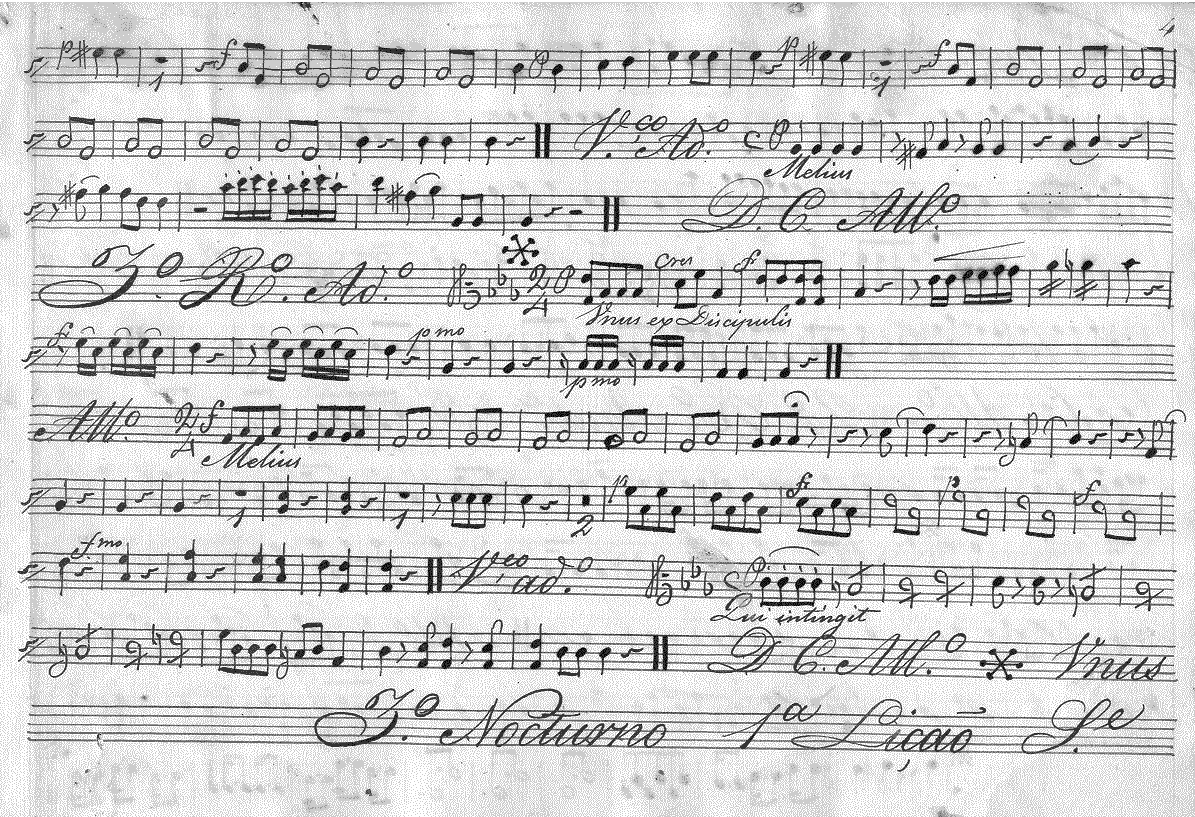 4
p 1 f p 1 f
V.co Ad.o C p
Melius
D. C. All.o
3.o R.o Ad.o 2/4 p cres f
Vnus ex Discipulis
f p mo
p mo
All.o 2/4 f
Melius
1 1 2 p f p f
f mo V.co ad.o C p
Qui intingit
D C. All.o Vnus
3.o Nocturno 1.a Licão Se